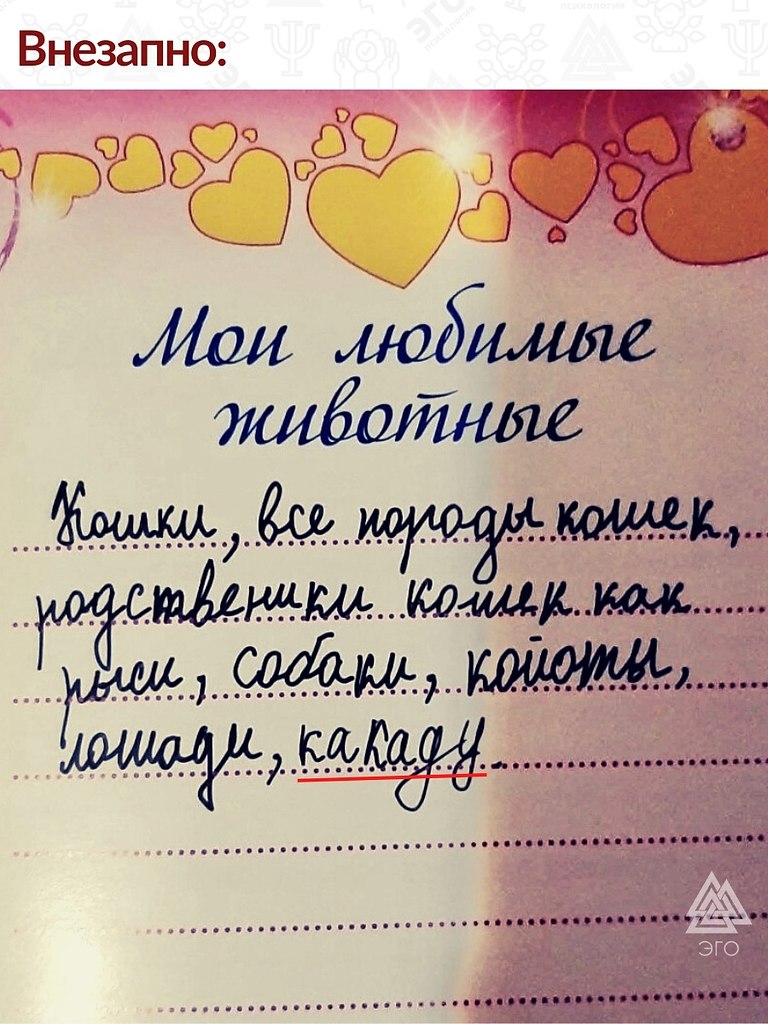 Внезапно:
Мои любимые
животные
Кошки, все породы кошек,
родственики кошек как
рыси, собаки, койоты,
лошади, какаду.
ЭГО